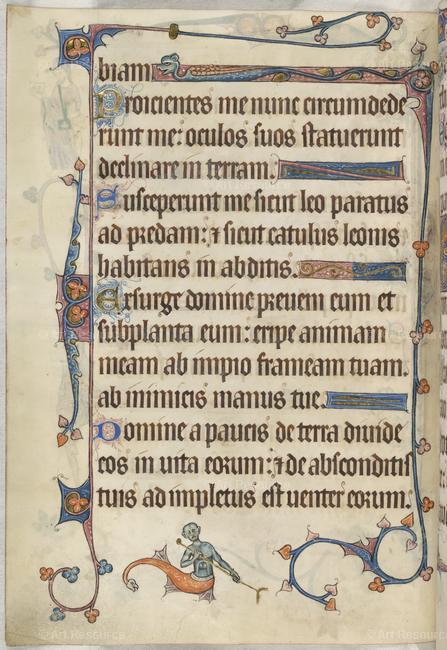 biam
Proicientes me nunc circumdede
runt me: oculos suos statuerunt
declinare in terram.
Susceperunt me sicut leo paratus
ad predam: ⁊ sicut catulus leonis
habitans in abditis.
Exsurge domine preueni eum et
subplanta eum: eripe animam
meam ab impio frameam tuam.
ab inimicis manus tue.
Domine a paucis de terra diuide
eos in uita eorum: ⁊ de absconditis
tuis adimpletus est uenter eorum.
© Art Resource
© Art Resource